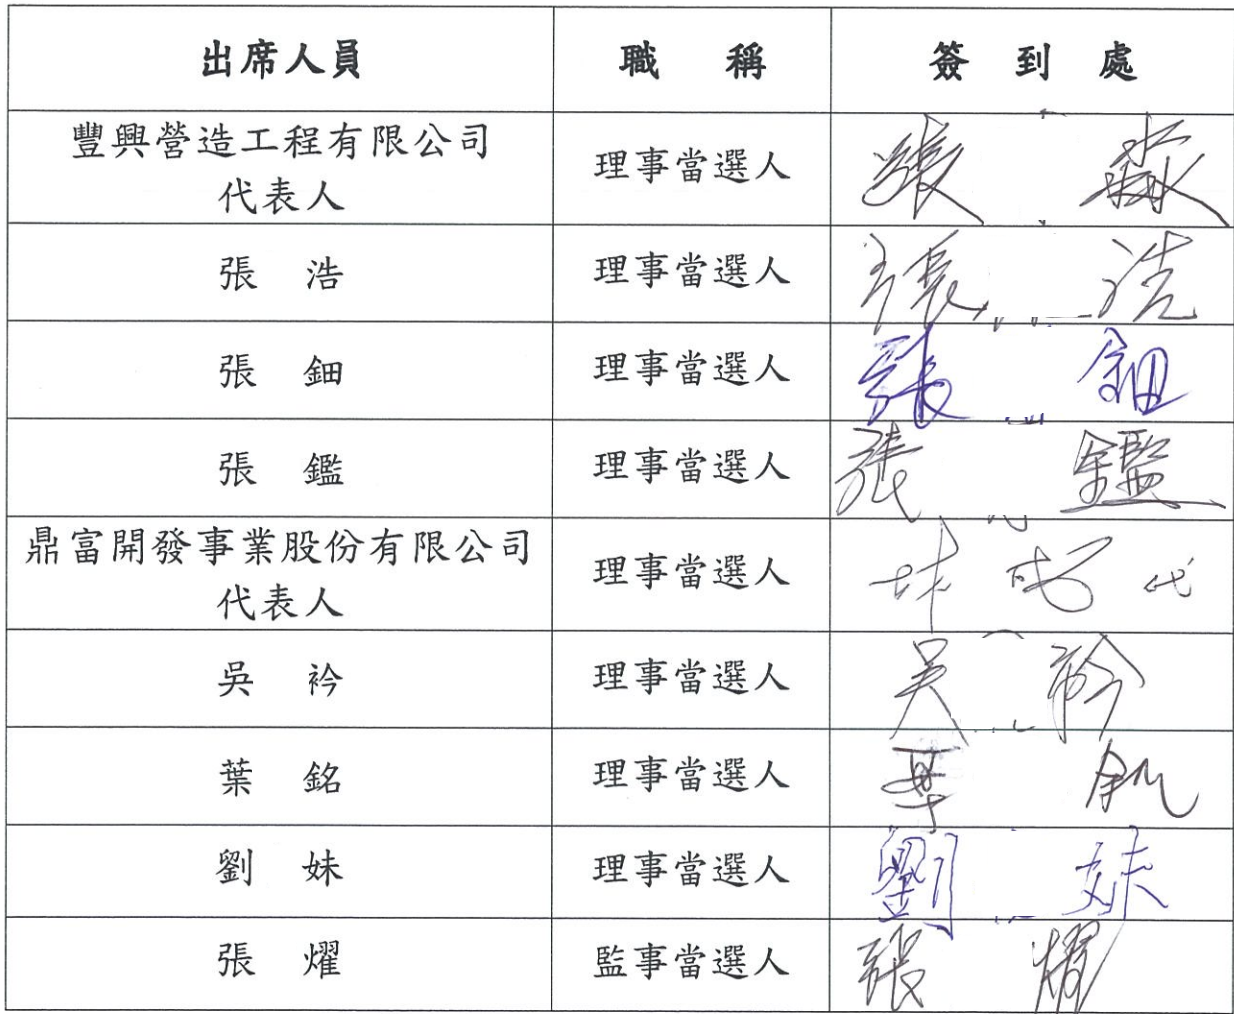 出席人員 職 稱 簽 到 處
豐興營造工程有限公司
代表人 理事當選人 張 淼
張 浩 理事當選人 張 浩
張 鈿 理事當選人 張 鈿
張 鑑 理事當選人 張 鑑
鼎富開發事業股份有限公司
代表人 理事當選人 代
吳 衿 理事當選人 吳 衿
葉 銘 理事當選人 葉
劉 妹 理事當選人 劉 妹
張 燿 監事當選人 張 燿